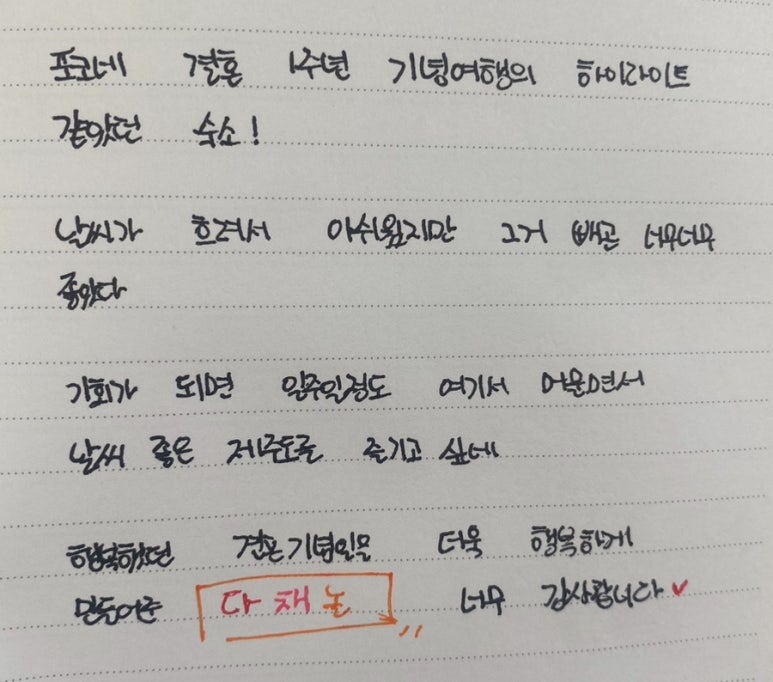 포코네 결혼 1주년 기념여행의 하이라이트
같았던 숙소!
날씨가 흐려서 아쉬웠지만 그거 빼곤 너무너무
좋았다
기회가 되면 일주일정도 여기서 머물면서
날씨 좋은 제주도를 즐기고 싶네
행복했던 결혼기념일을 더욱 행복하게
만들어준 다채논 너무 감사합니다